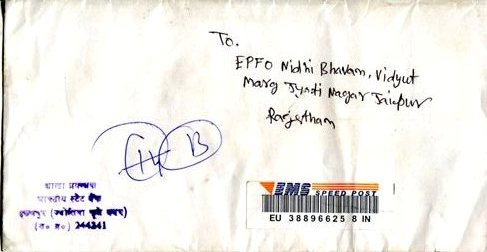 To.
EPFO Nidhi Bhavan, Vidyut
Marg Jyoti Nagar Jaipur
Rajesthan
14 B
शाखा प्रबन्धक
भारतीय स्टेट बैंक
(उ० प्र०) 244241
EMS
SPEED POST
EU 38896625 8 IN